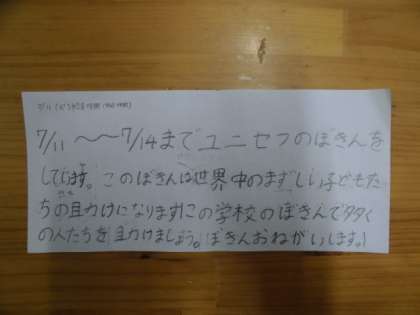 7/11 〜〜7/14までユニセフのぼきんを
しています。このぼきんは世界中のまずしい子どもた
ちの助けになります!この学校のぼきんで多く
の人たちを助けましょう。ぼきんおねがいします。!